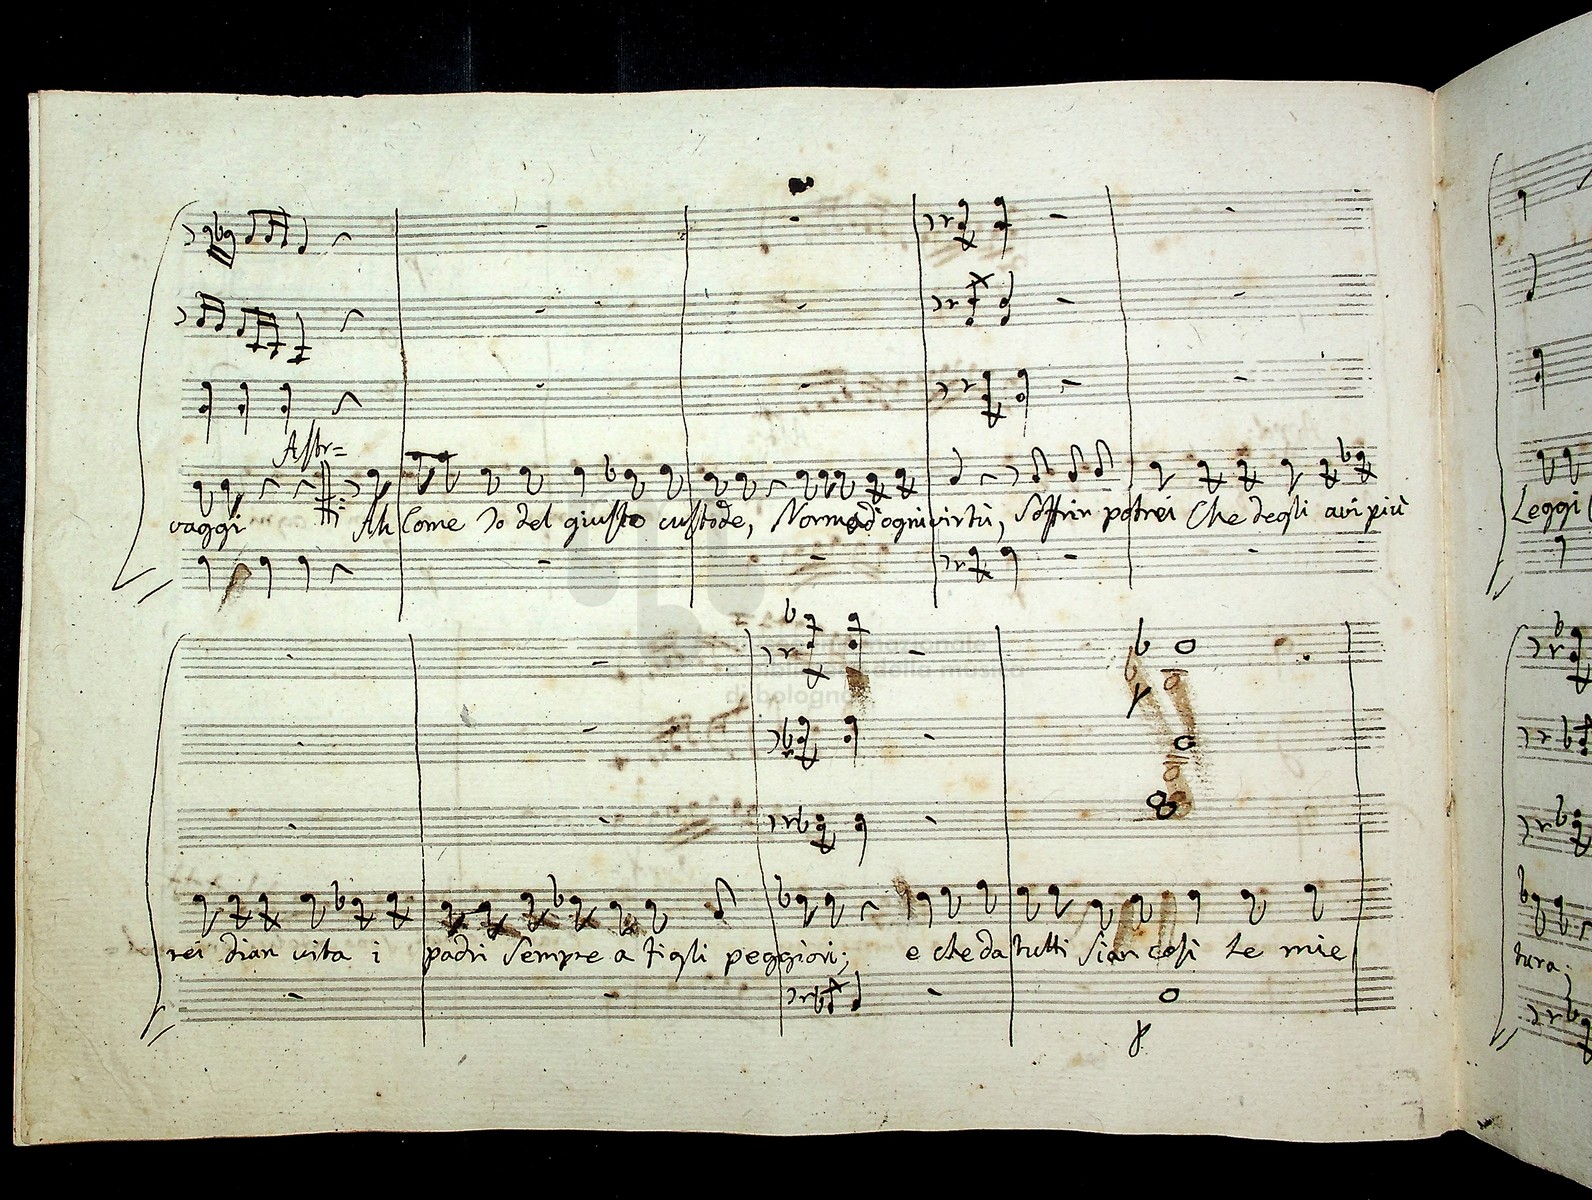 Astr=
vaggi Ah Come Io del giusto custode, Norma d'ogni virtù, Soffrir potrei Che degli avi più
rei dian vita i padri sempre a figli peggiori; e che da tutti sian così le mie
Leggi
tura;
museo internazionale
e biblioteca della musica
di bologna